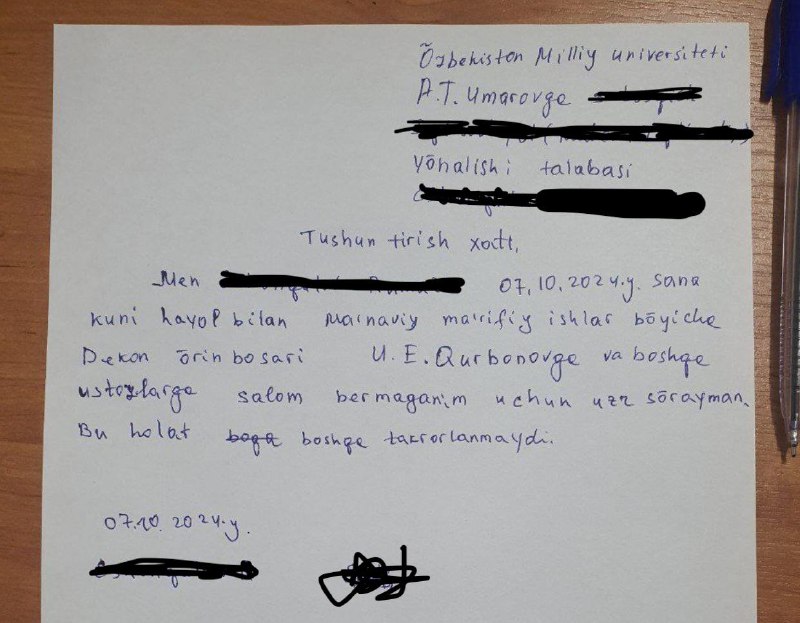 Õzbekiston Milliy universiteti
A.T. Umarovga
yõnalishi talabasi
Tushuntirish xatti,
Men 07.10.2024.y. sana
kuni hayol bilan Ma'naviy ma'rifiy ishlar bõyicha
Dekan õrinbosari U.E.Qurbonovga va boshqa
ustozlarga salom bermaganim uchun uzr sõrayman.
Bu holat boshqa takrorlanmaydi.
07.10.2024.y.